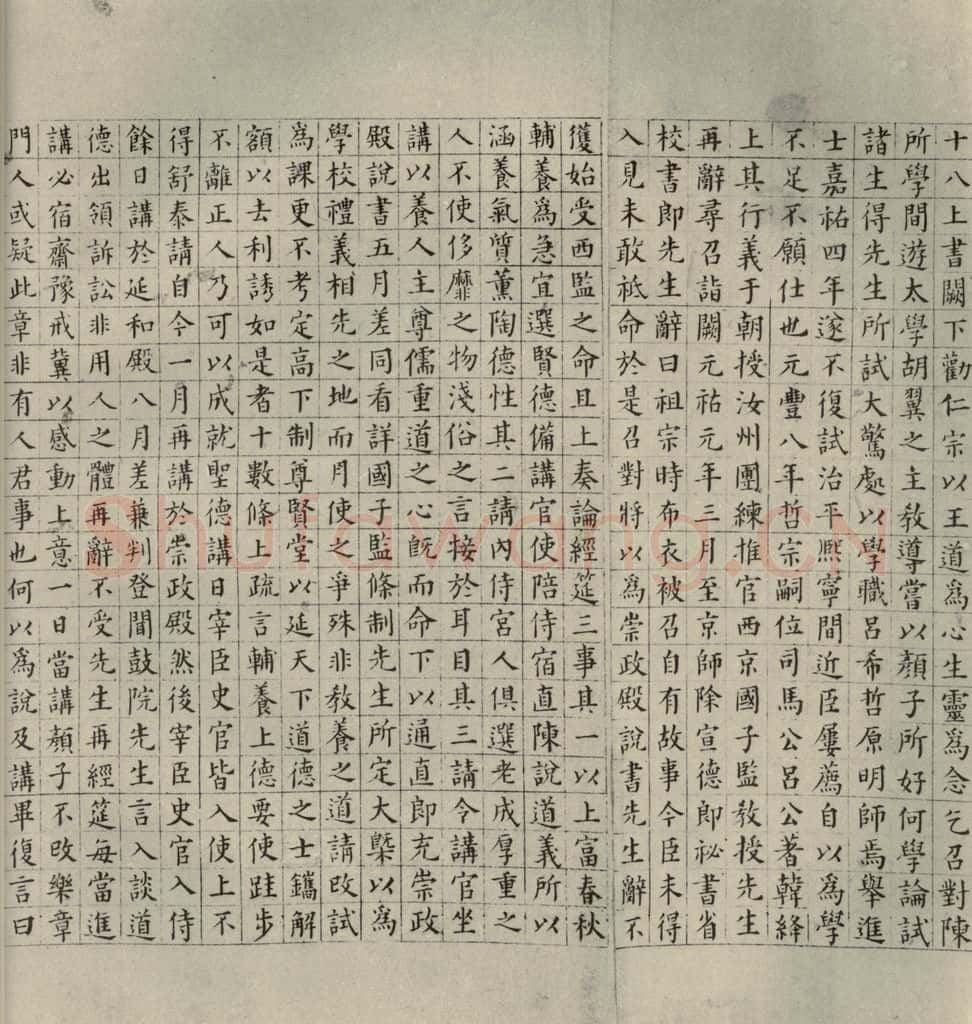 十八上書闕下勸仁宗以王道為心生靈為念乞召對陳
所學間遊太學胡翼之主教導嘗以顏子所好何學論試
諸生得先生所試大驚處以學職呂希哲原明師焉舉進
士嘉祐四年遂不復試治平熙寧間近臣屢薦自以為學
不足不願仕也元豐八年哲宗嗣位司馬公呂公著韓絳
上其行義于朝授汝州團練推官西京國子監教授先生
再辭尋召詣闕元祐元年三月至京師除宣德郎祕書省
校書郎先生辭曰祖宗時布衣被召自有故事今臣未得
入見未敢祗命於是召對將以為崇政殿說書先生辭不
獲始受西監之命且上奏論經筵三事其一以上富春秋
輔養為急宜選賢德備講官使陪侍宿直陳說道義所以
涵養氣質薰陶德性其二請內侍宮人俱選老成厚重之
人不使侈靡之物淺俗之言接於耳目其三請令講官坐
講以養人主尊儒重道之心既而命下以通直郎充崇政
殿說書五月差同看詳國子監條制先生所定大槩以為
學校禮義相先之地而月使之爭殊非教養之道請改試
為課更不考定高下制尊賢堂以延天下道德之士鐫解
額以去利誘如是者十數條上疏言輔養上德要使跬步
不離正人乃可以成就聖德講日宰臣史官皆入使上不
得舒泰請自今一月再講於崇政殿然後宰臣史官入侍
餘日講於延和殿八月差兼判登聞鼓院先生言入談道
德出領訴訟非用人之體再辭不受先生再經筵每當進
講必宿齋豫戒冀以感動上意一日當講顏子不改樂章
門人或疑此章非有人君事也何以為說及講畢復言曰
Shufawang.CN